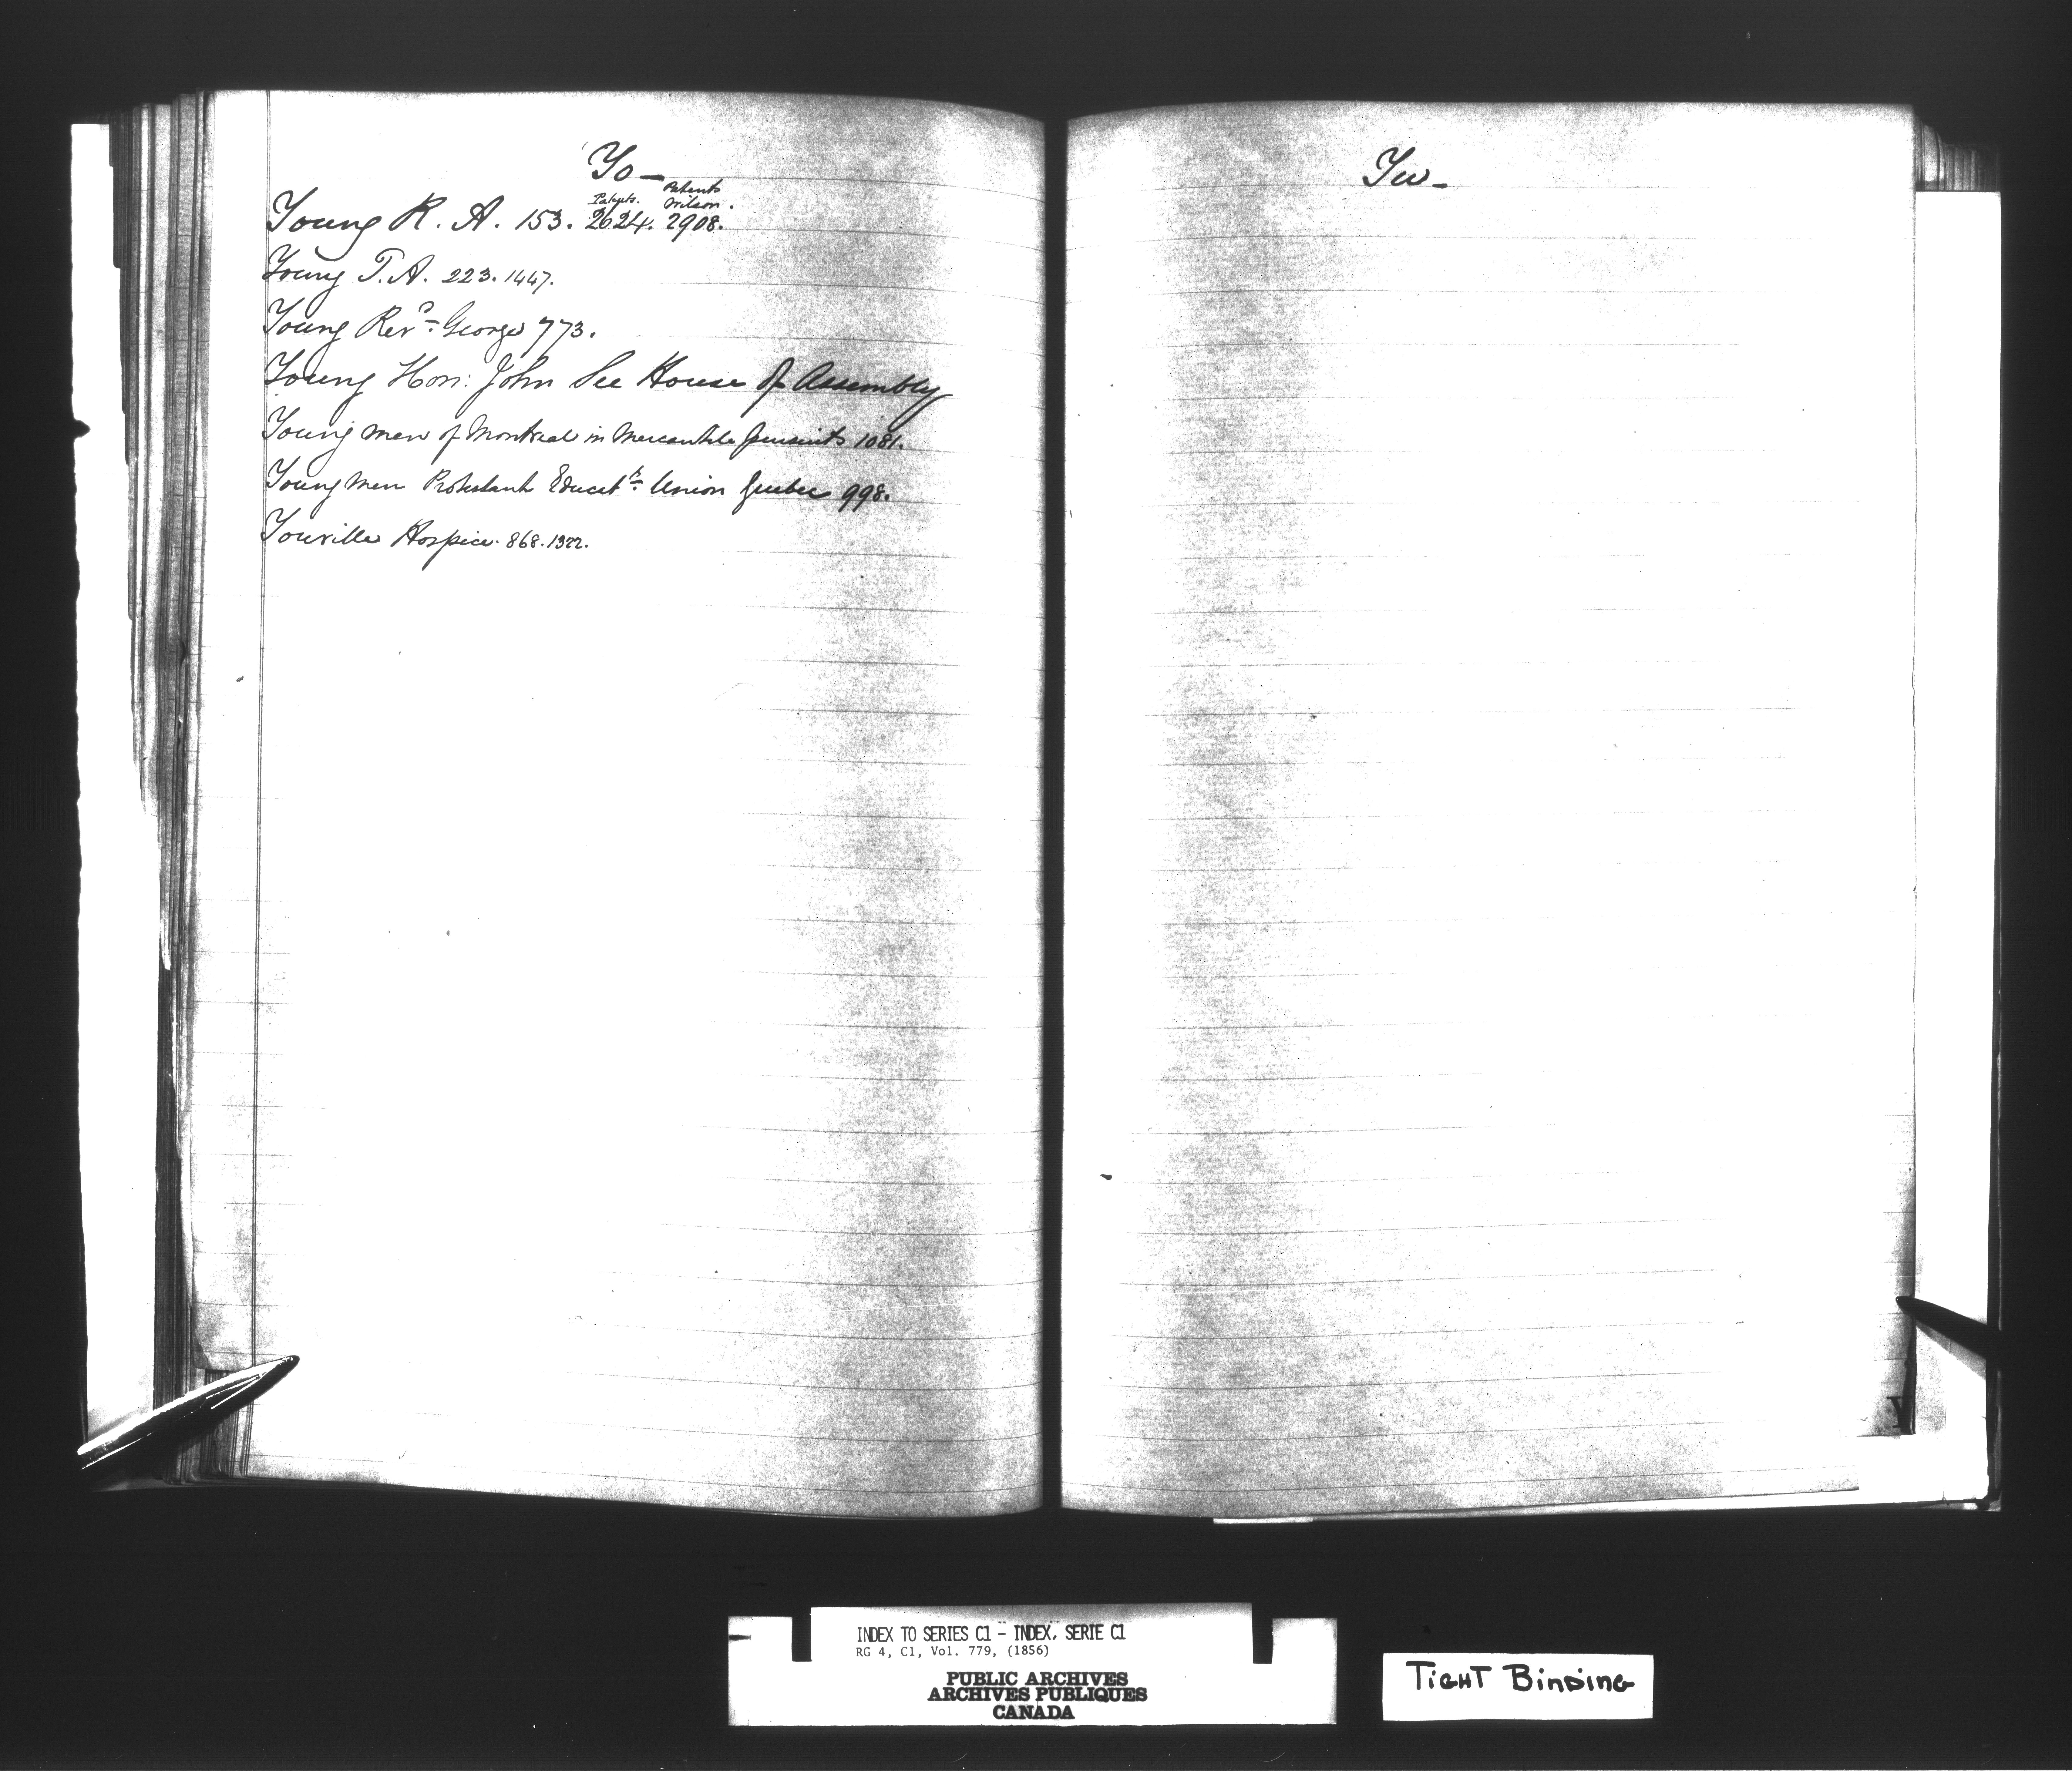 Yo-
Patents. Patents Wilson.
Young R. A. 153. 2624. 2908.
Young T. A. 223. 1447.
Young Revd George 773.
Young Hon: John See House of Assembly
Young men of Montreal in Mercantile pursuits 1081.
Young Men Protestant Educatn Union Quebec 998.
Youville Hospice. 868. 1322.
Yu-
Y
INDEX TO SERIES C1 - INDEX, SERIE C1
RG 4, C1, Vol. 779, (1856)
PUBLIC ARCHIVES
ARCHIVES PUBLIQUES
CANADA
TIGHT BINDING